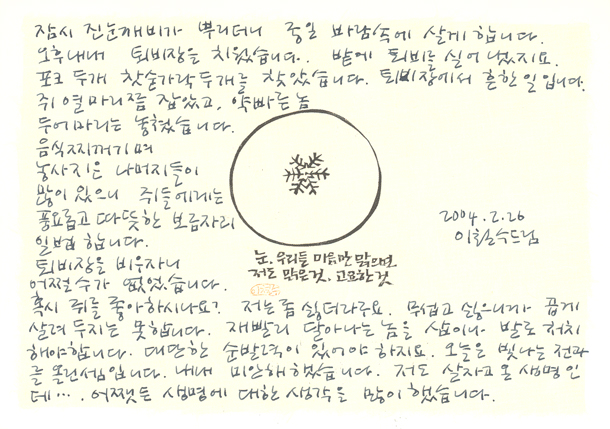 잠시 진눈깨비가 뿌리더니 종일 바람속에 살게 합니다.
오후내내 퇴비장을 치웠습니다. 밭에 퇴비를 실어 냈지요.
포크 두개 찻숟가락 두개를 찾았습니다. 퇴비장에서 흔한 일입니다.
쥐 열마리쯤 잡았고, 약빠른 놈
두어마리는 놓쳤습니다.
음식찌꺼기며
농사지은 나머지들이
많이 있으니 쥐들에게는
풍요롭고 따뜻한 보금자리
일법 합니다.
퇴비장을 비우자니
어쩔수가 없었습니다.
눈. 우리들 마음만 맑으면
저도 맑은것, 고요한것
2004.2.26
이철수드림
혹시 쥐를 좋아하시나요? 저는 좀 싫더라구요. 무섭고 싫으니까 곱게
살려 두지는 못합니다. 재빨리 달아나는 놈을 삽이나 발로 저치
해야합니다. 대단한 순발력이 있어야 하지요. 오늘은 빛나는 전과
를 올린셈입니다. 내내 미안해했습니다. 저도 살자고 온 생명인
데···. 어쨌든 생명에 대한 생각을 많이 했습니다.